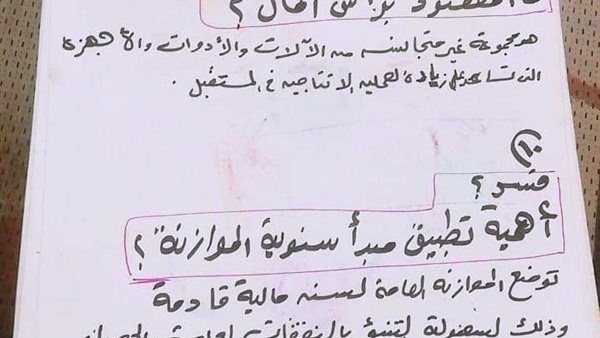 المقصود برأس المال ؟
هو مجموعة غير متجانسه من الآلات والأدوات والأجهزة
التى تساعد على زيادة العمليه الانتاجيه فى المستقبل .
فسر ؟
أهمية تطبيق مبدأ سنوية الموازنة" ؟
توضع الموازنه العامة لسنه مالية قادمة
وذلك لسهولة التنبؤ بالنفقات